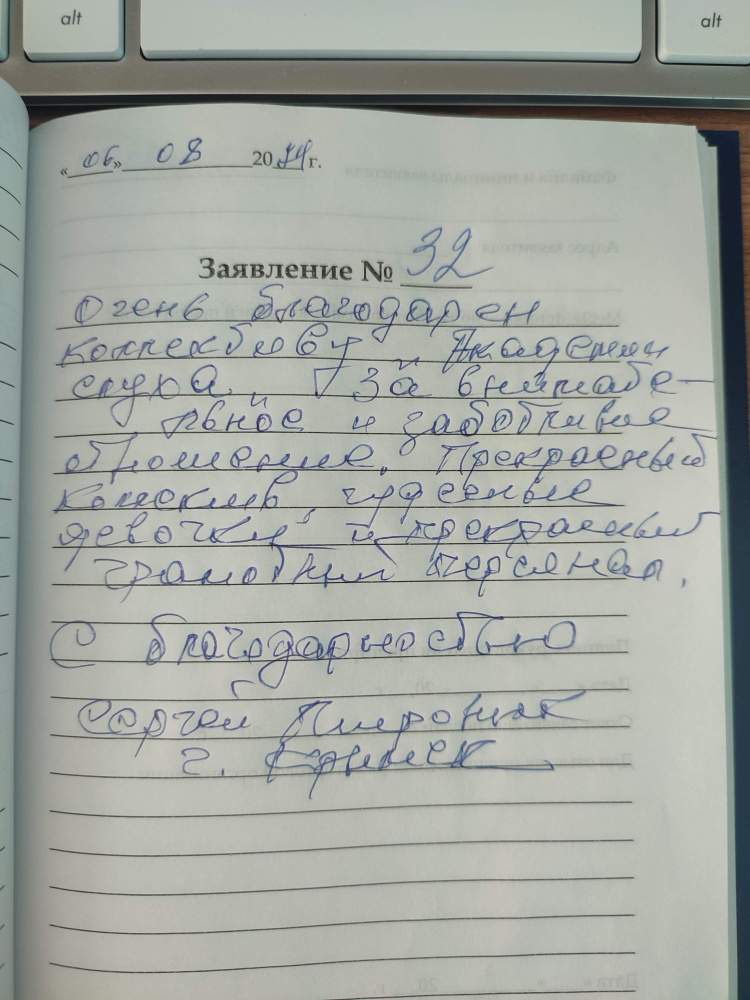 alt
alt
«06» 08 2024 г.
Заявление № 32
Очень благодарен
коллективу Академии
слуха за внимате-
льное и заботливое
отношение. Прекрасный
коллектив, чудесные
девочки и прекрасный
грамотный персонал.
С благодарностью
Сергей
г. Крымск